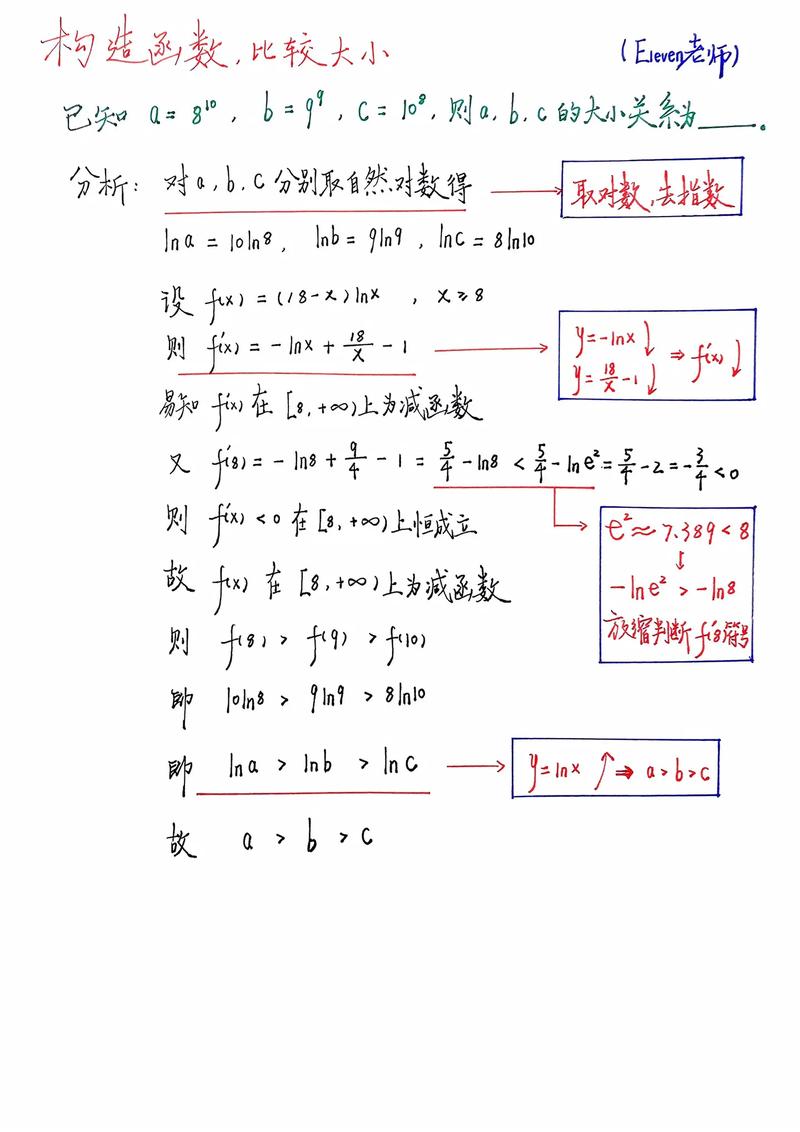 构造函数,比较大小
(Eleven老师)
已知 a=8¹⁰, b=9⁹, c=10⁸,则a,b,c的大小关系为____。
分析: 对a,b,c分别取自然对数得
取对数,去指数
lna=10ln8, lnb=9ln9, lnc=8ln10
设 f(x)=(18-x)lnx , x≥8
则 f'(x)=-lnx+18/x-1
y=-lnx↓
y=18/x-1↓ ⇒ f'(x)↓
易知 f'(x)在[8,+∞)上为减函数
又 f'(8)=-ln8+9/4-1=5/4-ln8<5/4-lne²=5/4-2=-3/4<0
则 f'(x)<0在[8,+∞)上恒成立
e²≈7.389<8
↓
-lne²>-ln8
放缩判断f'(8)符号
故 f(x)在[8,+∞)上为减函数
则 f(8)>f(9)>f(10)
即 10ln8>9ln9>8ln10
即 lna>lnb>lnc
y=lnx↗⇒a>b>c
故 a>b>c